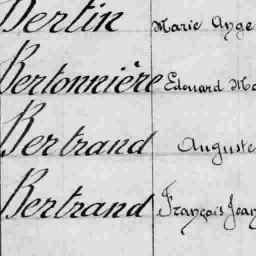 Bertin Marie Ange
Bertonnière Edouard
Bertrand Auguste
Bertrand François Jean